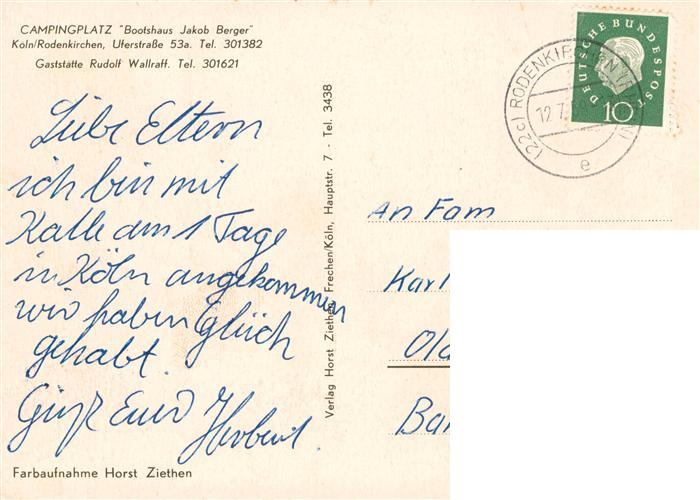 CAMPINGPLATZ "Bootshaus Jakob Berger"
Köln/Rodenkirchen, Uferstraße 53a. Tel. 301382
Gaststätte Rudolf Wallraff. Tel. 301621
Liebe Eltern
ich bin mit
Kalle am 1 Tage
in Köln angekommen
wir haben Glück
gehabt.
Gruß Euer Herbert.
Farbaufnahme Horst Ziethen
Verlag Horst Ziethen, Frechen/Köln, Hauptstr. 7 - Tel. 3438
DEUTSCHE BUNDESPOST
10
(22c) RODENKIRCHEN
12.7.
e
An Fam
Karl
Old
Bar